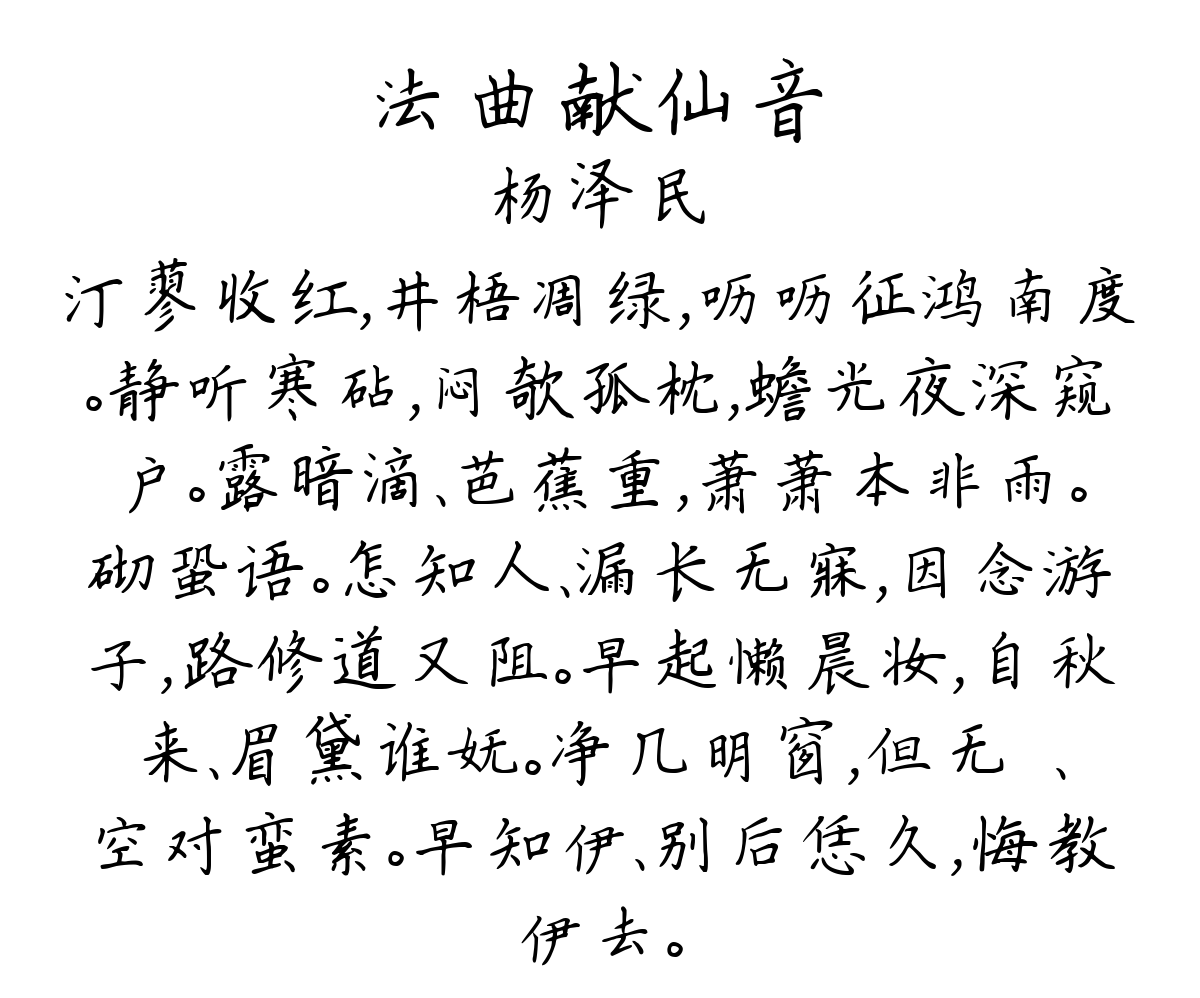 法曲献仙音
杨泽民
汀蓼收红,井梧凋绿,呖呖征鸿南度
。静听寒砧,闷欹孤枕,蟾光夜深窥
户。露暗滴、芭蕉重,萧萧本非雨。
砌蛩语。怎知人、漏长无寐,因念游
子,路修道又阻。早起懒晨妆,自秋
来、眉黛谁妩。净几明窗,但无 、
空对蛮素。早知伊、别后恁久,悔教
伊去。